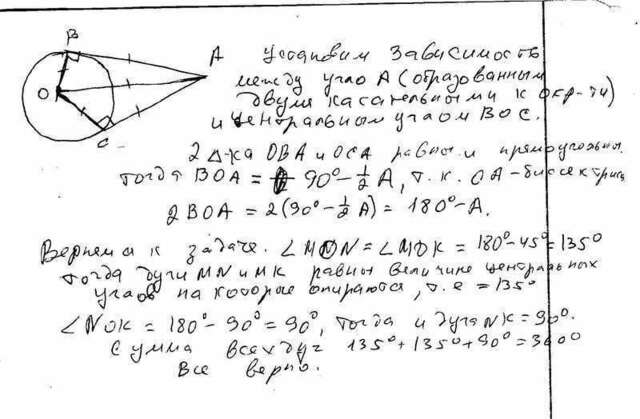 B
A
O
C
Установим зависимость
между угло А (образованным
двумя касательными к окр-ти)
и центральным углом ВОС.
2 Δ-ка ОВА и ОСА равны и прямоугольны.
Тогда ВОА = 90° - ½ А, т.к. ОА - биссектриса
2 ВОА = 2(90° - ½ А) = 180° - А.
Вернемся к задаче. ∠MON = ∠MOK = 180° - 45° = 135°
тогда дуги MN и MK равны величине центральных
углов на которые опираются, т.е = 135°
∠NOK = 180° - 90° = 90°, тогда и дуга NK = 90°.
Сумма всех дуг 135° + 135° + 90° = 360°
Все верно.